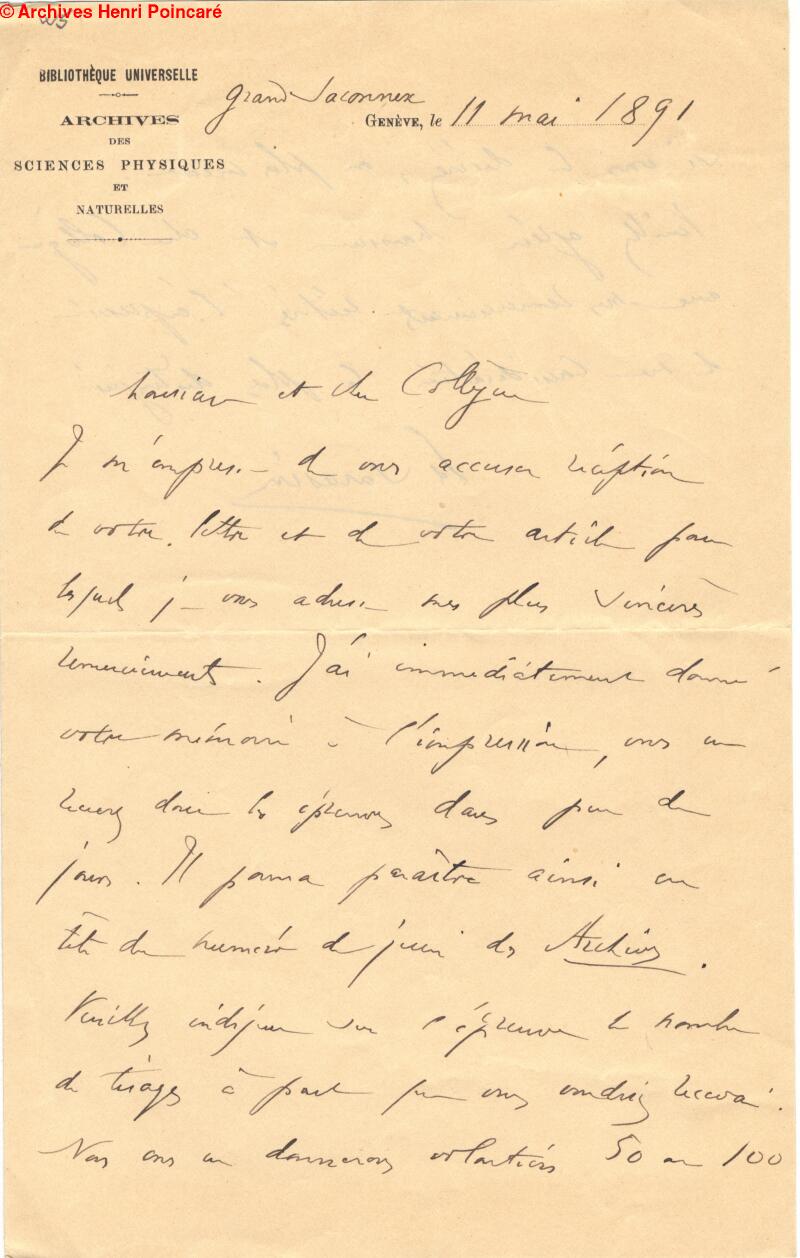 © Archives Henri Poincaré
BIBLIOTHÈQUE UNIVERSELLE
ARCHIVES
DES
SCIENCES PHYSIQUES
ET
NATURELLES
Grand Saconnex
GENÈVE, le 11 mai 1891
Monsieur et cher Collègue
Je m'empresse de vous accuser réception
de votre lettre et de votre article pour
lesquels je vous adresse mes plus sincères
remerciements. J'ai immédiatement donné
votre mémoire à l'impression, vous en
recevrez donc les épreuves dans peu de
jours. Il pourra paraître ainsi en
tête du numéro de juin des Archives.
Veuillez indiquer sur l'épreuve le nombre
de tirages à part que vous voudriez recevoir.
Nous vous en donnerons volontiers 50 ou 100